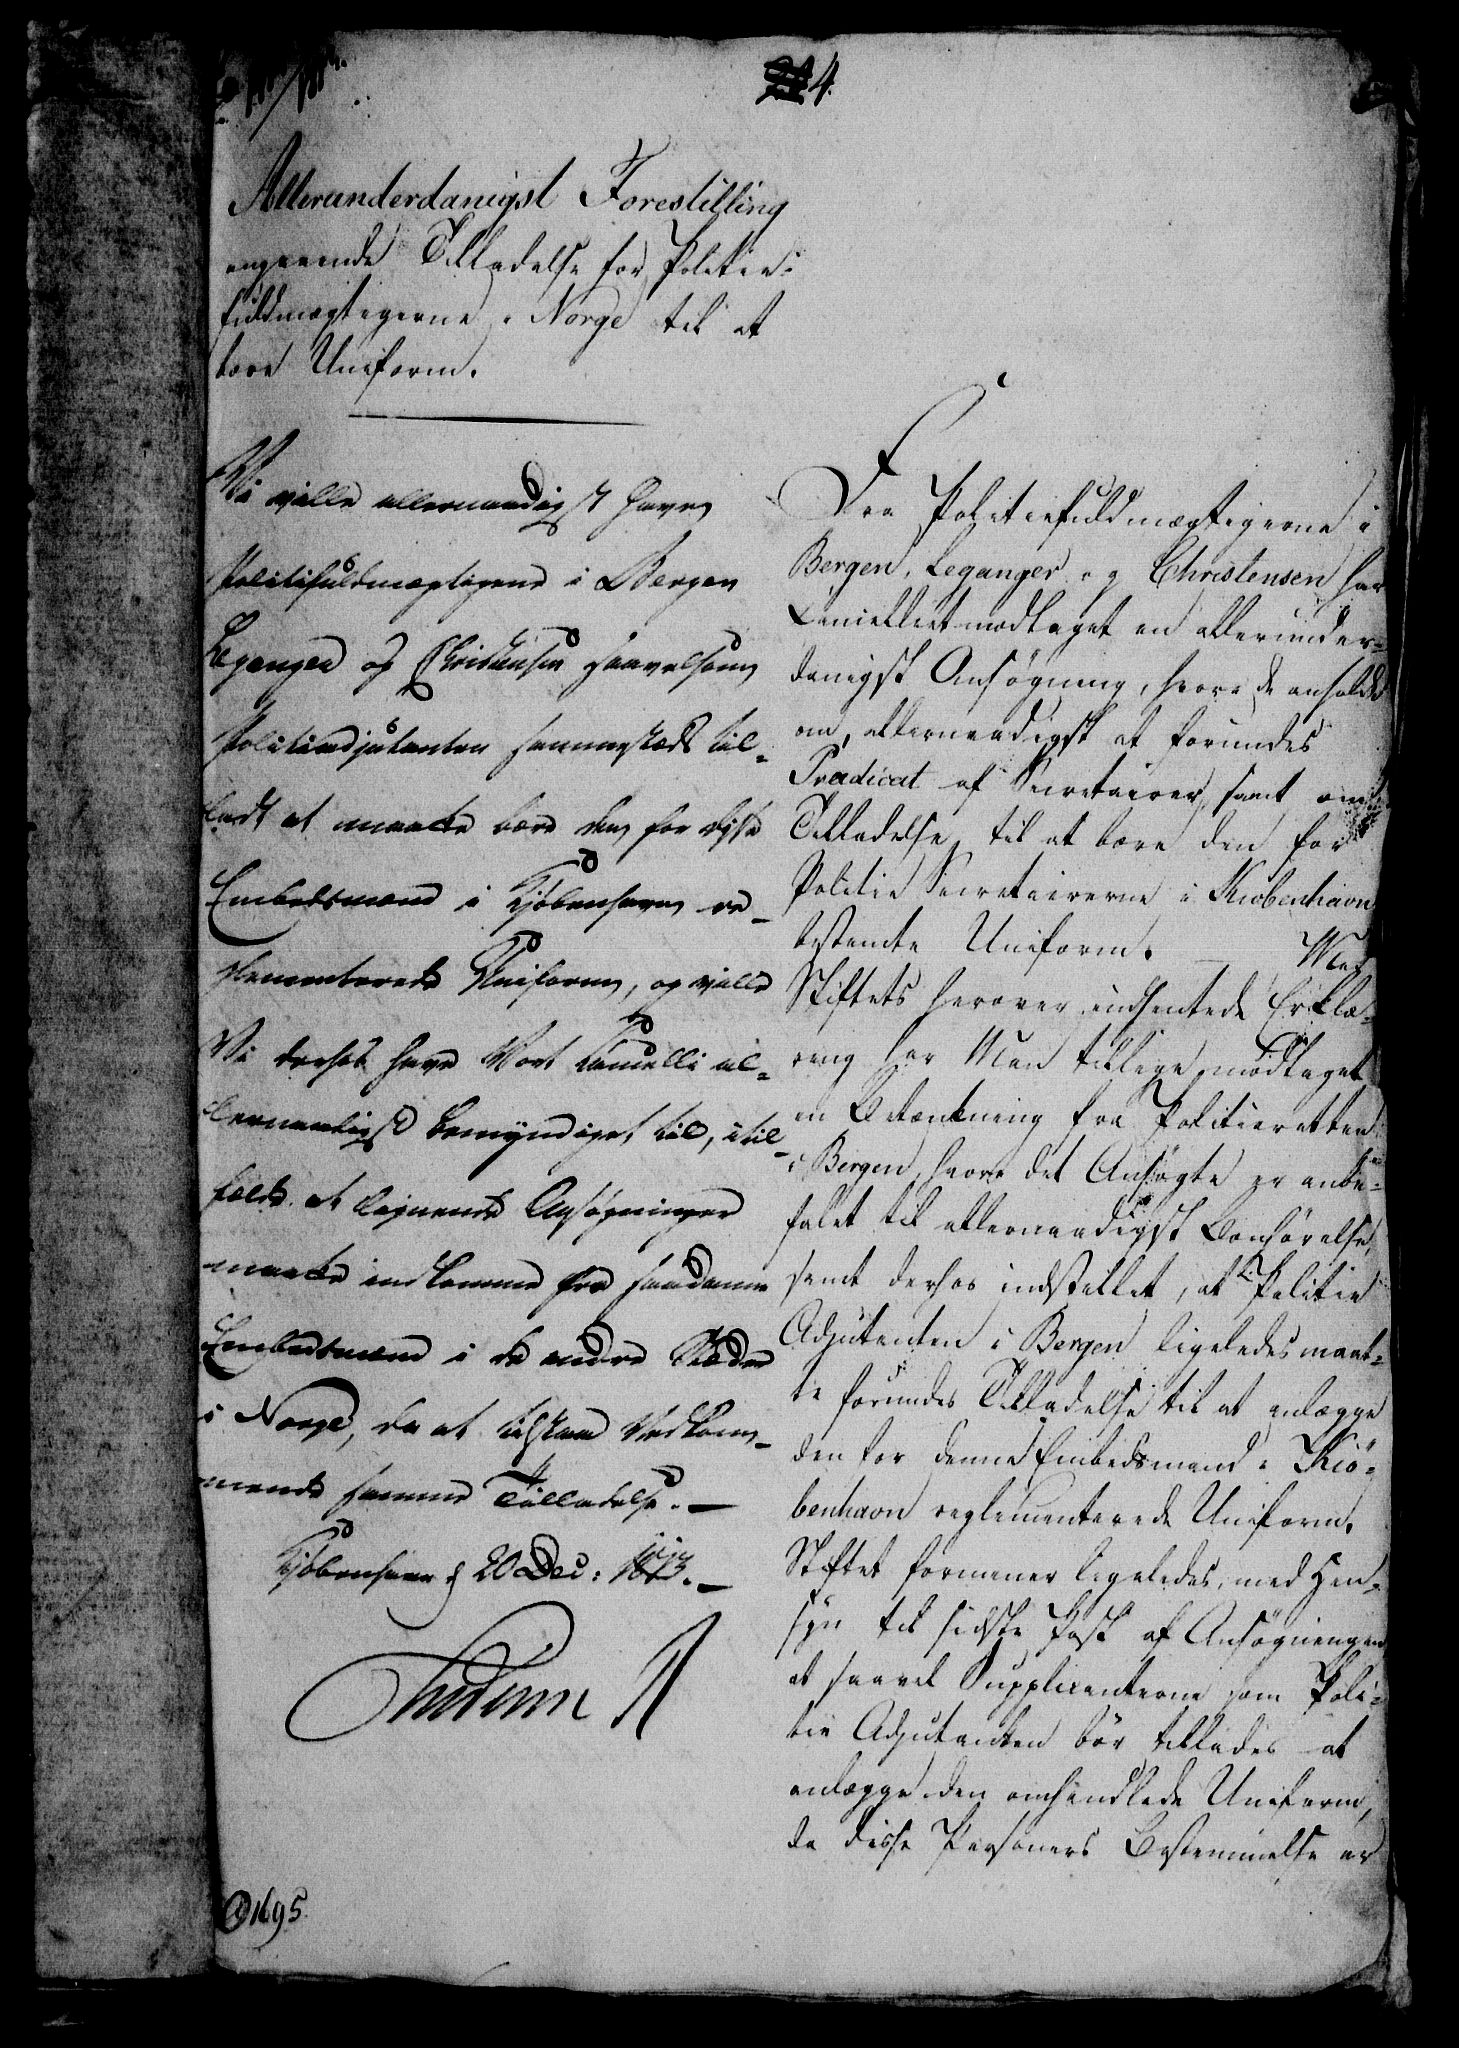 4.
Allerunderdanigst Forestilling
angaaende Tilladelse for Politie-
fuldmægtigerne i Norge til at
bære Uniform.
Vi ville allernaadigst have
Politifuldmægtigene i Bergen
Leganger og Christensen saavelsom
Politieadjutanten sammesteds til-
ladt at maatte bære den for disse
Embedsmænd i Kjøbenhavn re-
glementerede Uniform, og ville
Vi derhos have Vort Cancelli al-
lernaadigst bemyndiget til, i til-
fælde at lignende Ansøgninger
maatte indkomme fra saadanne
Embedsmænd i de andre Stæder
i Norge, da at tilstaae Vedkom-
mende samme Tilladelse. —
Kjøbenhavn d 20 Dec: 1813. —
Frederik R
Fra Politiefuldmægtigerne i
Bergen, Leganger og Christensen har
Cancelliet modtaget en allerunder-
danigst Ansøgning, hvori de anholde
om, allernaadigst at forundes
Prædicat af Secretairer, samt om
Tilladelse til at bære den for
Politie Secretairerne i Kiøbenhavn
bestemte Uniform. — Med
Stiftets herover indhentede Erklæ-
ring har Man tillige modtaget
en Betænkning fra Politieretten
i Bergen, hvori det Ansøgte er anbe-
falet til allernaadigst Bønhørelse,
samt derhos indstillet, at Politie
Adjutanten i Bergen ligeledes maat-
te forundes Tilladelse til at anlægge
den for denne Embedsmand i Kiö-
benhavn reglementerede Uniform.
Stiftet formener ligeledes, med Hen-
syn til sidste Post af Ansøgningen
at saavel Supplicanterne som Poli-
tie Adjutanten bör tillades at
anlægge den omhandlede Uniform,
da disse Personers Bestemmelse er
1695.